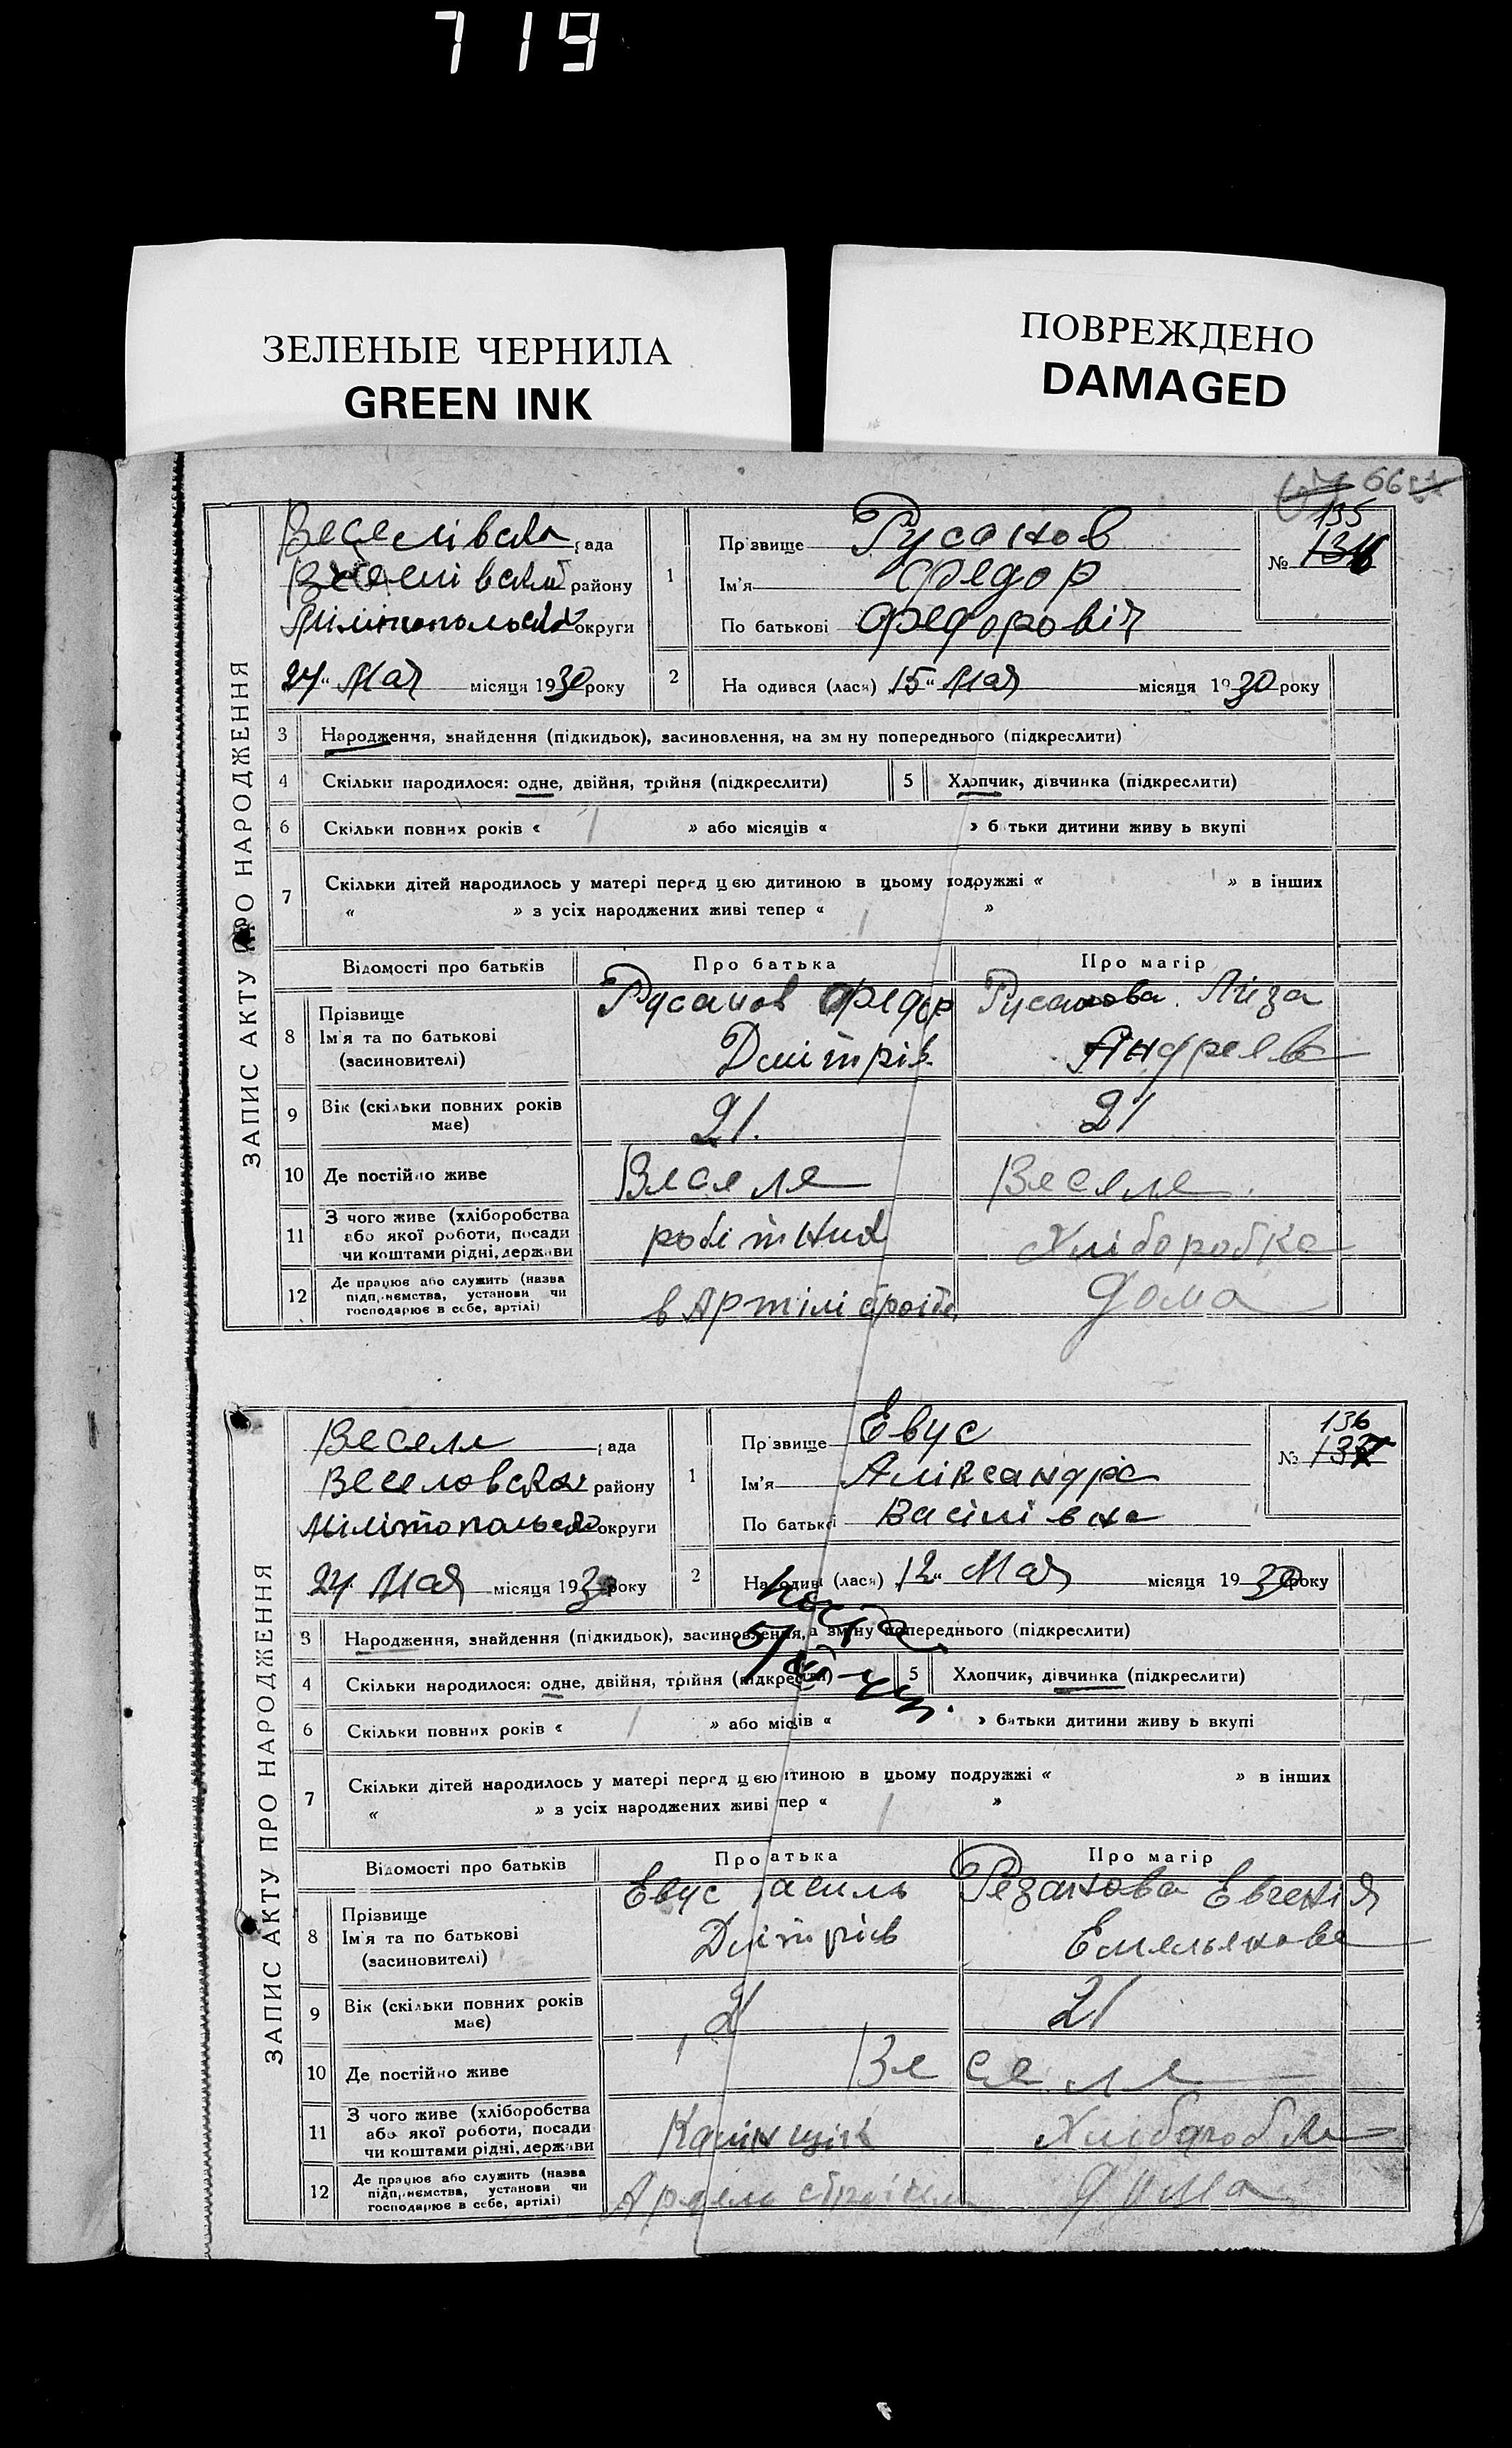 719
ЗЕЛЕНЫЕ ЧЕРНИЛА
GREEN INK
ПОВРЕЖДЕНО
DAMAGED
66
ЗАПИС АКТУ ПРО НАРОДЖЕННЯ
Веселівска рада
Веселівской району
Мілітопольской округи
24 " Мая місяця 1930 року
1
Прізвище Русанов
Ім'я Федор
По батькові Федоровіч
135
№ 136
2
На одився (лася) 15 " Мая місяця 1930 року
3 Народження, знайдення (підкидьок), засиновлення, на зм ну попереднього (підкреслити)
4 Скільки народилося: одне, двійня, трійня (підкреслити)
5 Хлопчик, дівчинка (підкреслити)
6 Скільки повних років « » або місяців « » б тьки дитини живу ь вкупі
7 Скільки дітей народилось у матері перед цією дитиною в цьому подружжі « » в інших
« » з усіх народжених живі тепер « »
Відомості про батьків Про батька Про матір
8 Прізвище
Ім'я та по батькові
(засиновителі)
Русанов Федор
Дмітрів
Русанова Лиза
Андреев
9 Вік (скільки повних років
має)
21. 21
10 Де постійно живе Веселе Веселе
11 З чого живе (хліборобства
або якої роботи, посади
чи коштами рідні, держави
робітник Хліборобка
12 Де працює або служить (назва
підприємства, установи чи
господарює в себе, артілі)
в Артілі дома
ЗАПИС АКТУ ПРО НАРОДЖЕННЯ
Веселе рада
Веселовской району
Мілітопольской округи
24 Мая місяця 1930 року
1
Прізвище Евус
Ім'я Аліксандра
По батькові Васілівна
136
№ 137
2
Народивс (лася) 12 " Мая місяця 1930 року
3 Народження, знайдення (підкидьок), засиновлення, а зміну попереднього (підкреслити)
4 Скільки народилося: одне, двійня, трійня (підкреслити)
5 Хлопчик, дівчинка (підкреслити)
6 Скільки повних років « » або місяців « » батьки дитини живу ь вкупі
7 Скільки дітей народилось у матері перед цією итиною в цьому подружжі « » в інших
« » з усіх народжених живі пер « »
Відомості про батьків Про атька Про матір
8 Прізвище
Ім'я та по батькові
(засиновителі)
Евус асиль
Дмітрів
Резанова Евгенія
Емельянова
9 Вік (скільки повних років
має)
21 21
10 Де постійно живе Веселе
11 З чого живе (хліборобства
або якої роботи, посади
чи коштами рідні, держави
Камінщік Хліборобка
12 Де працює або служить (назва
підприємства, установи чи
господарює в себе, артілі)
Артель дома